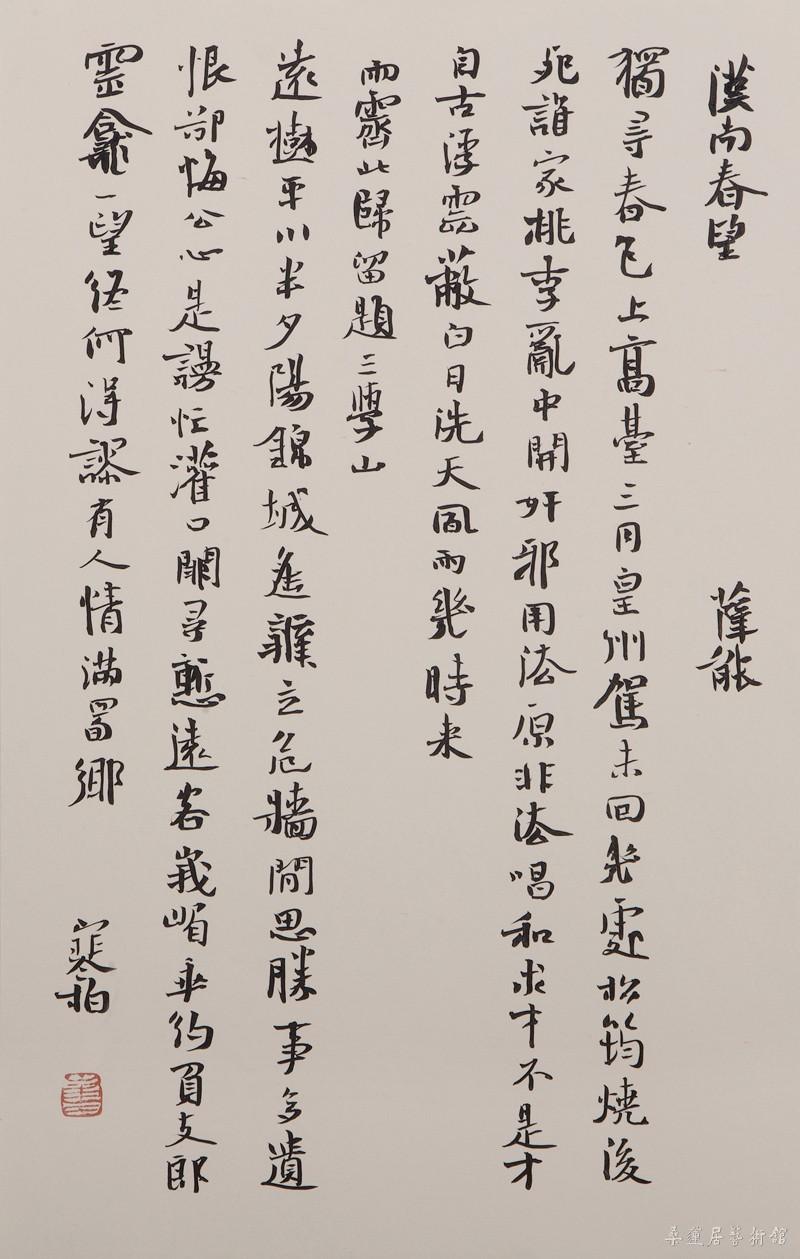 漢南春望 薛能
獨尋春色上高臺三月皇州駕未回幾處松筠燒後
死誰家桃李亂中開奸邪用法原非法唱和求才不是才
自古浮雲蔽白日洗天風雨幾時來
雨霽北歸留題三學山
遠樹平川半夕陽錦城遙辨立危牆閒思勝事多遺
恨卻悔公心是謾忙灌口闕尋慙遠客峨嵋乖約負支郎
靈龕一望終何得謬有人情滿蜀鄉 寒柏
桑蓮居藝術館